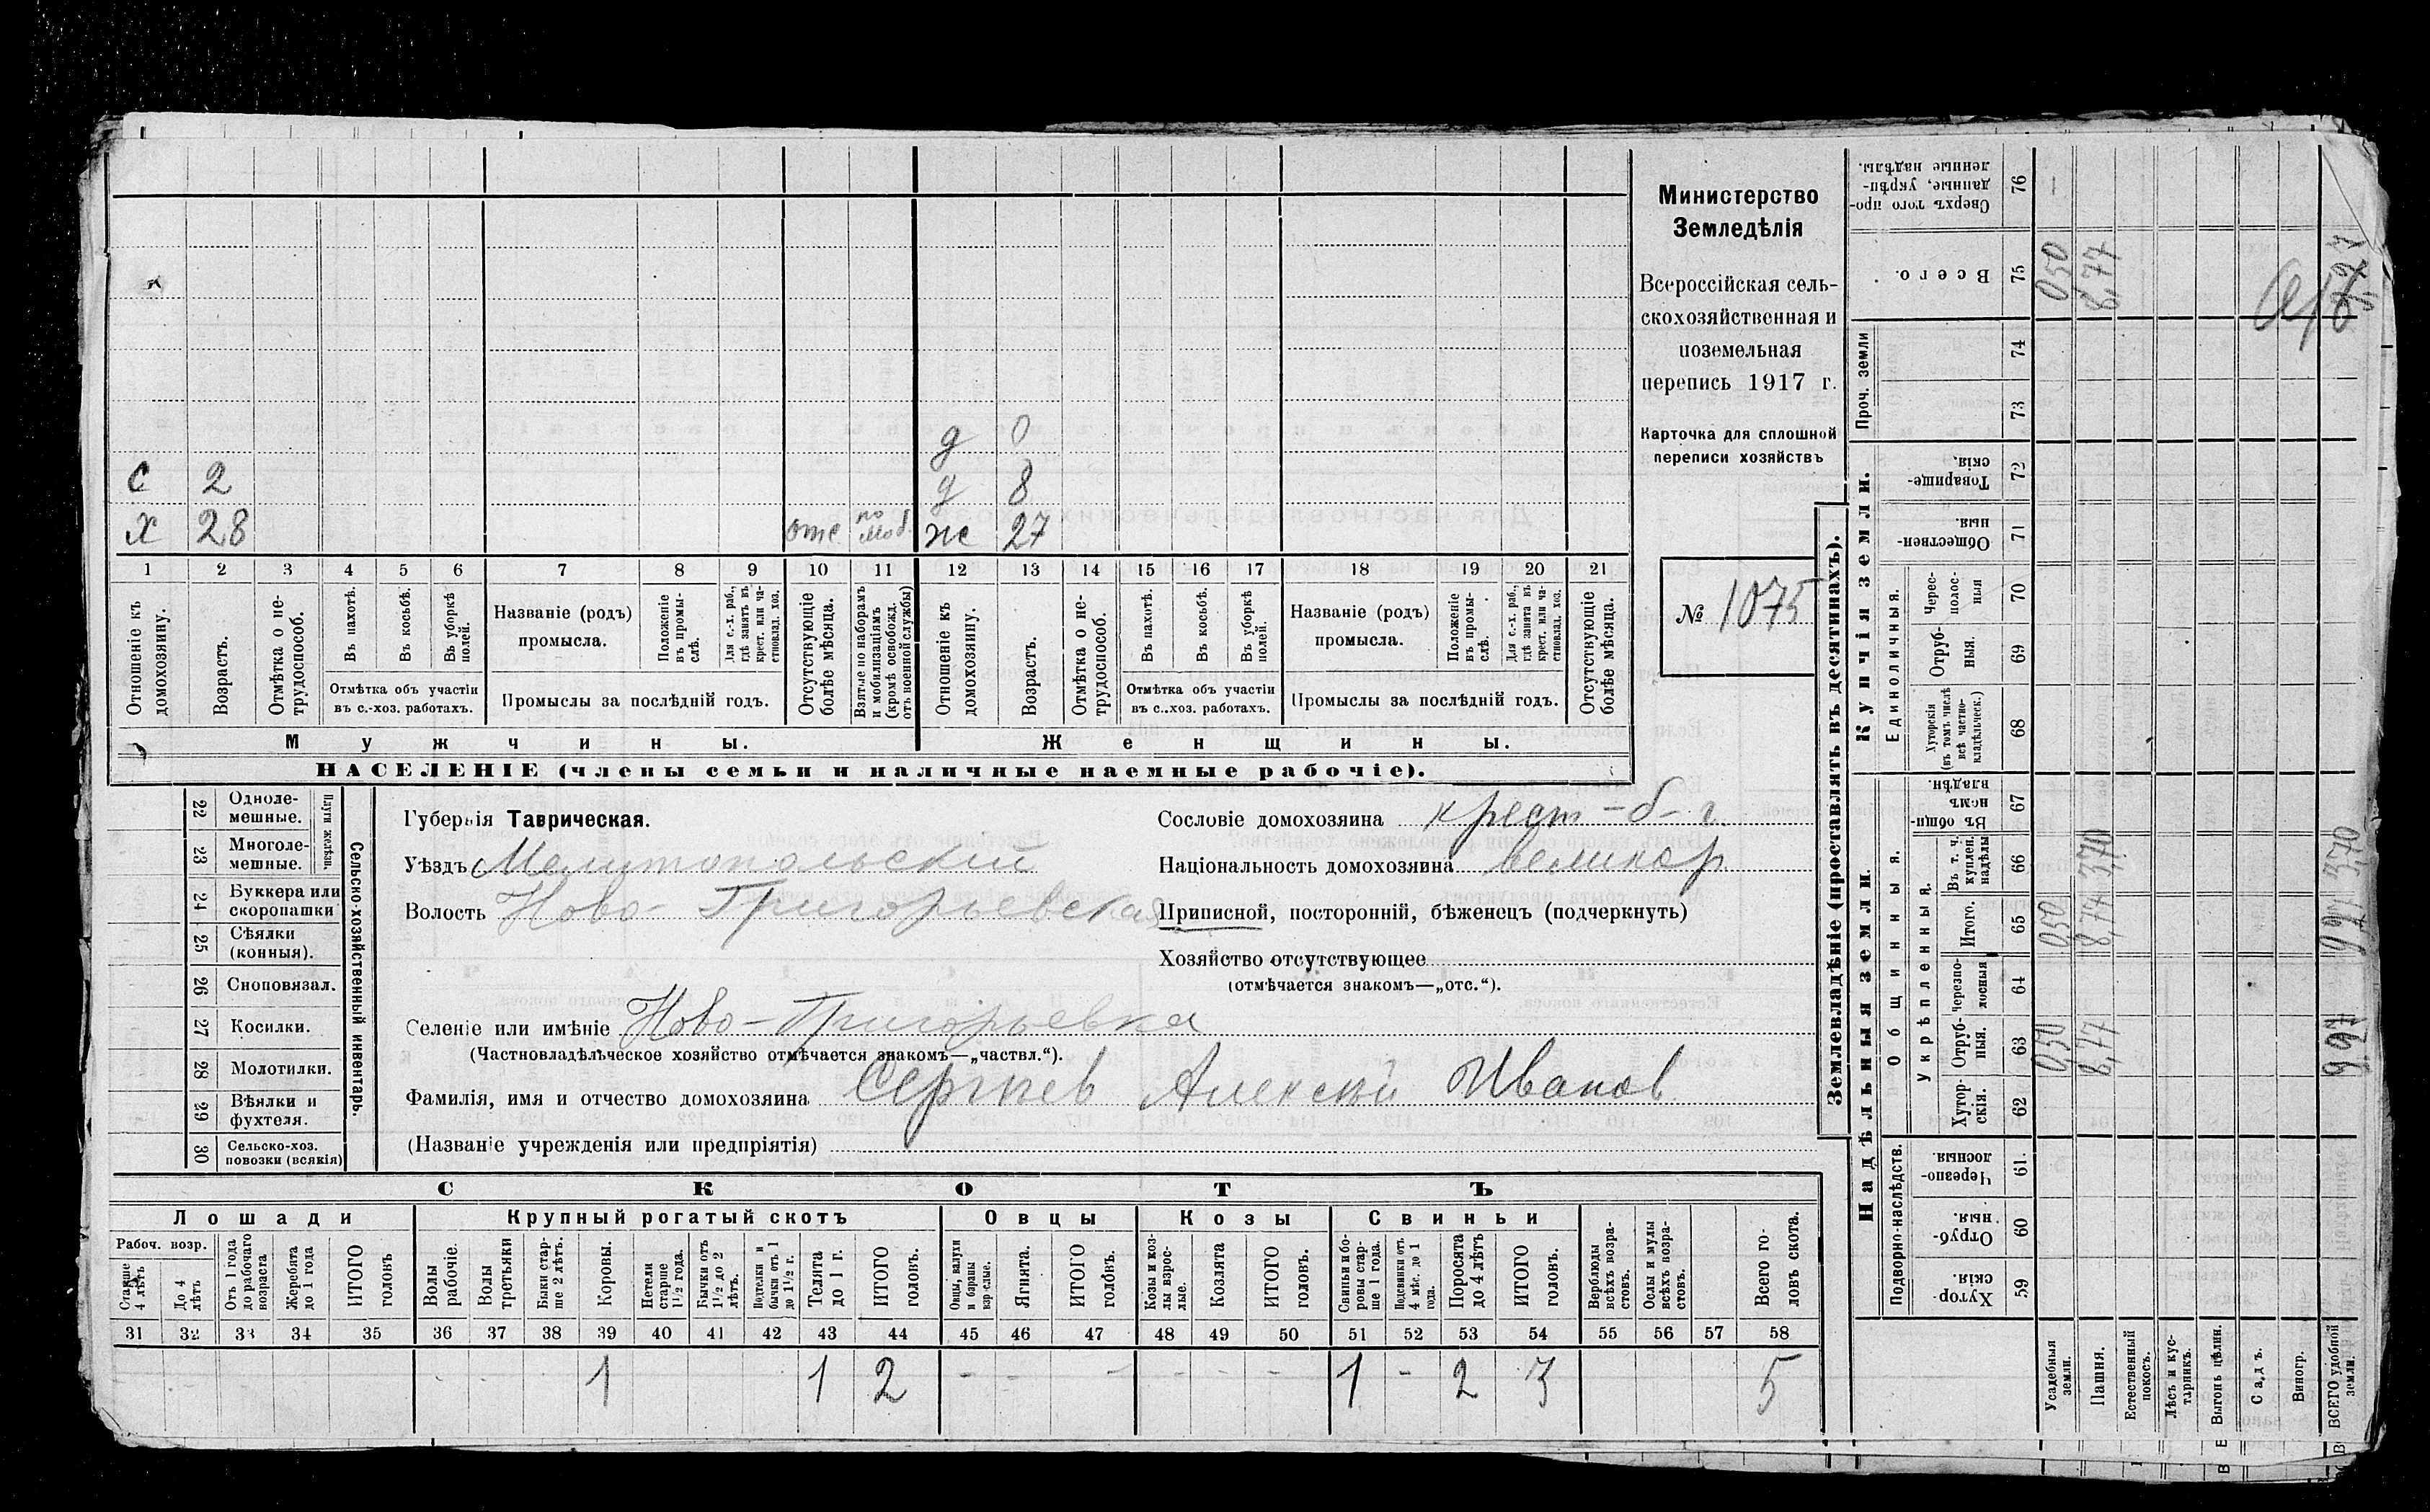 с 2 д 0
д 8
х 28 отс по моб. ж 27
1 2 3 4 5 6 7 8 9 10 11 12 13 14 15 16 17 18 19 20 21
Отношеніе къ домохозяину.
Возрастъ.
Отмѣтка о не-
трудоспособ.
Въ пахотѣ.
Въ косьбѣ.
Въ уборкѣ полей.
Отмѣтка объ участіи
въ с.-хоз. работахъ.
Названіе (родъ)
промысла.
Положеніе въ промы-
слѣ.
Для с.-х. раб., гдѣ занятъ въ крест. или ча-
стновлад. хоз.
Промыслы за послѣдній годъ.
Отсутствующіе болѣе мѣсяца.
Взятые по наборамъ и мобилизаціямъ (кромѣ освобожд. отъ военной службы)
Отношеніе къ домохозяину.
Возрастъ.
Отмѣтка о не-
трудоспособ.
Въ пахотѣ.
Въ косьбѣ.
Въ уборкѣ полей.
Отмѣтка объ участіи
въ с..хоз. работахъ.
Названіе (родъ)
промысла.
Положеніе въ промы-
слѣ.
Для с.-х. раб., гдѣ занята въ крест. или ча-
стновлад. хоз.
Промыслы за послѣдній годъ.
Отсутствующіе болѣе мѣсяца.
Мужчины. Женщины.
НАСЕЛЕНІЕ (члены семьи и наличные наемные рабочіе).
Министерство
Земледѣлія
Всероссійская сель-
скохозяйственная и
поземельная
перепись 1917 г.
Карточка для сплошной
переписи хозяйствъ
№ 1075
22 Одноле-
мешные.
23 Многоле-
мешные.
Плуги желѣзн.
24 Буккера или
скоропашки
25 Сѣялки
(конныя).
26 Сноповязал.
27 Косилки.
28 Молотилки.
29 Вѣялки и
фухтеля.
30 Сельско-хоз.
повозки (всякія)
Сельско-хозяйственный инвентарь.
Губернія Таврическая.
Уѣздъ Мелитопольскій
Волость Ново-Григорьевская
Селеніе или имѣніе Ново-Григорьевка
(Частновладѣльческое хозяйство отмѣчается знакомъ—„частвл.“).
Фамилія, имя и отчество домохозяина Сергѣев Алексѣй Иванов
(Названіе учрежденія или предпріятія)
Сословіе домохозяина крест-б-г.
Національность домохозяина великор
Приписной, посторонній, бѣженецъ (подчеркнуть)
Хозяйство отсутствующее
(отмѣчается знакомъ—„отс.“).
СКОТЪ
Лошади Крупный рогатый скотъ Овцы Козы Свиньи
Рабоч. возр.
Старше 4 лѣтъ
До 4 лѣтъ
Отъ 1 года до рабочаго возраста
Жеребята до 1 года
ИТОГО головъ
Волы рабочіе.
Волы третьяки
Быки стар-
ше 2 лѣтъ.
Коровы.
Нетели старше 1½ года.
Бычки отъ 1½ до 2 лѣтъ.
Подтелки и бычки отъ 1 до 1½ г.
Телята до 1 г.
ИТОГО головъ.
Овцы, валухи и бараны взрослые.
Ягнята.
ИТОГО головъ.
Козы и коз-
лы взрос-
лые.
Козлята
ИТОГО головъ.
Свиньи и бо-
ровы стар-
ше 1 года.
Подсвинки отъ 4 мѣс. до 1 года.
Поросята до 4 лѣтъ
ИТОГО головъ.
Верблюды всѣхъ возра-
стовъ.
Ослы и мулы всѣхъ возра-
стовъ.
Всего го-
ловъ скота.
31 32 33 34 35 36 37 38 39 40 41 42 43 44 45 46 47 48 49 50 51 52 53 54 55 56 57 58
1 1 2 - - - - - - 1 - 2 3 5
Землевладѣніе (проставлять въ десятинахъ).
Надѣльныя земли. Купчія земли. Проч. земли
Подворно-наслѣдств. Общинныя. Укрѣпленныя. Единоличныя.
Сверхъ того про-
данные, укрѣп-
ленные надѣлы. 76 —
Всего. 75 0,50 8,77
74
73
Товарище-
скія. 72
Обществен-
ныя. 71
Черес-
полос-
ныя 70
Отруб-
ныя. 69
Хуторскія (въ томъ числѣ всѣ частно-
владѣльческ.) 68
Въ общин-
номъ владѣн. 67
Въ т. ч. куплен. надѣлы 66 3,70 3,70
Итого. 65 0,50 8,74
Черезпо-
лосныя 64
Отруб-
ныя. 63 0,50 8,47 9,97
Хутор-
скія. 62
Черезпо-
лосныя. 61.
Отруб-
ныя. 60
Хутор-
скія. 59
Усадебныя земли.
Пашня.
Естественный покосъ.
Лѣсъ и кус-
тарникъ.
Выгонъ цѣлин.
Садъ.
Виногр.
ВСЕГО удобной земли.